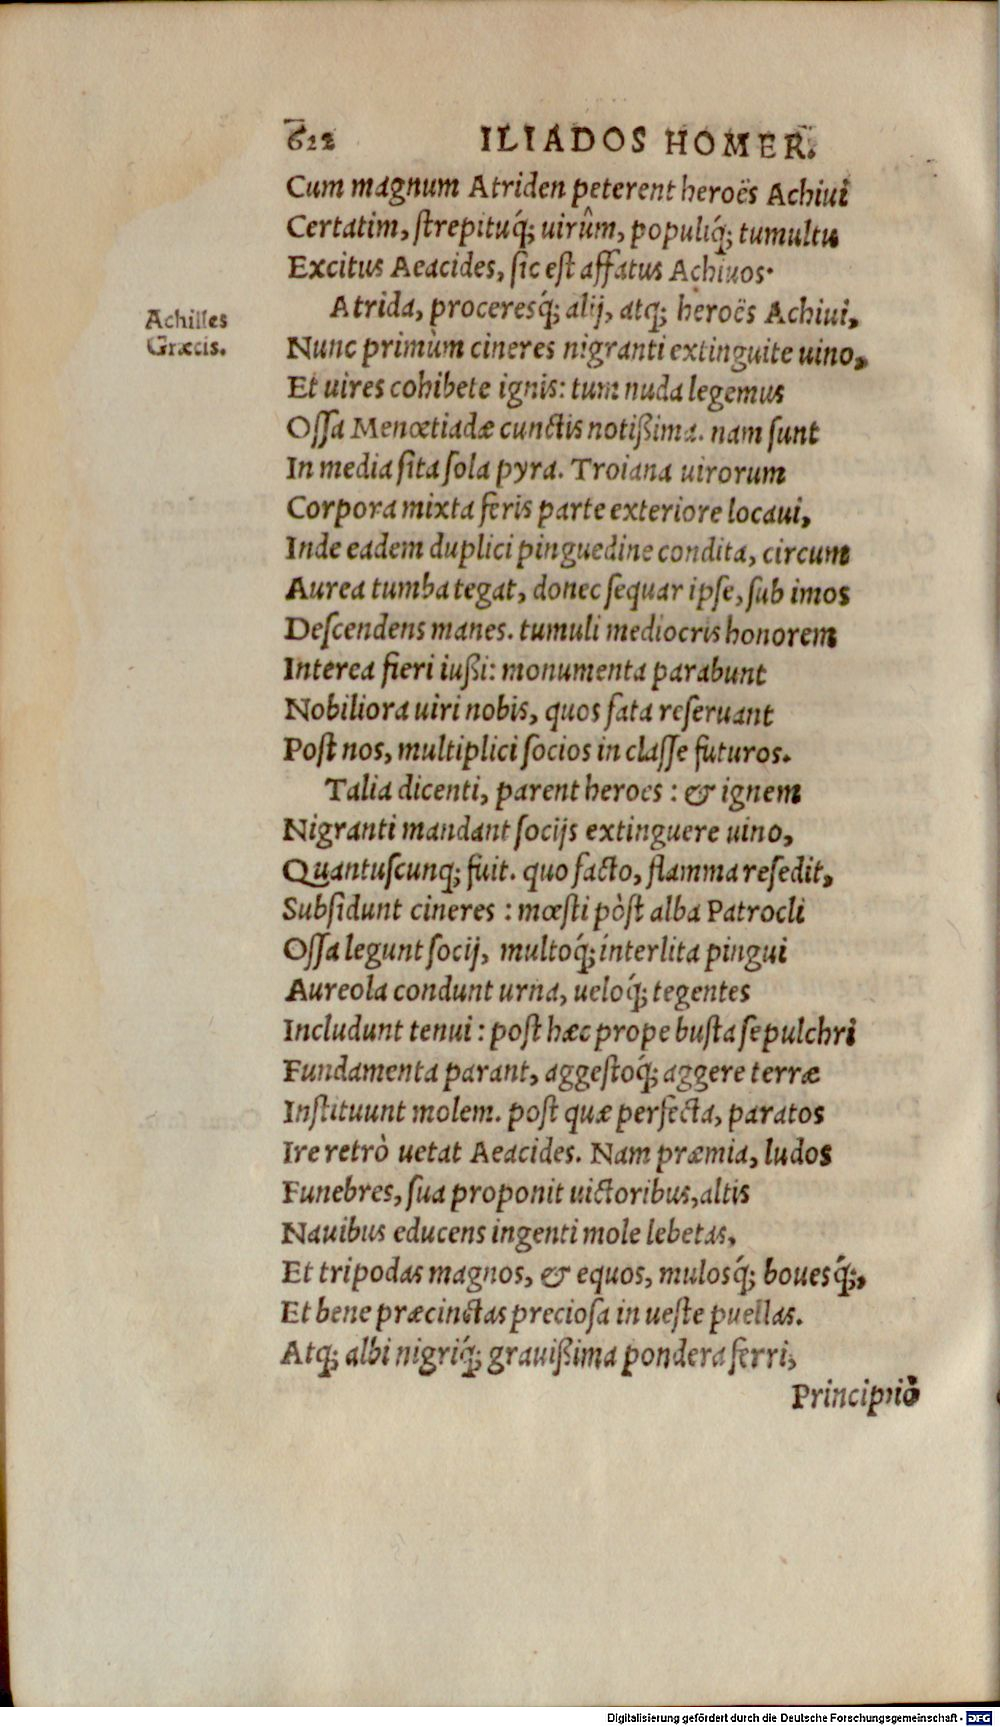 622 ILIADOS HOMER.
Cum magnum Atriden peterent heroës Achiui
Certatim, strepituq́; uirûm, populiq́; tumultu
Excitus Aeacides, sic est affatus Achiuos.
Atrida, proceresq́; alij, atq; heroës Achiui,
Achilles
Græcis.
Nunc primùm cineres nigranti extinguite uino,
Et uires cohibete ignis: tum nuda legemus
Ossa Menœtiadæ cunctis notißima. nam sunt
In media sita sola pyra. Troiana uirorum
Corpora mixta feris parte exteriore locaui,
Inde eadem duplici pinguedine condita, circum
Aurea tumba tegat, donec sequar ipse, sub imos
Descendens manes. tumuli mediocris honorem
Interea fieri iußi: monumenta parabunt
Nobiliora uiri nobis, quos fata reseruant
Post nos, multiplici socios in classe futuros.
Talia dicenti, parent heroes: & ignem
Nigranti mandant socijs extinguere uino,
Quantuscunq; fuit. quo facto, flamma resedit,
Subsidunt cineres: mœsti pòst alba Patrocli
Ossa legunt socij, multoq́; interlita pingui
Aureola condunt urna, ueloq́; tegentes
Includunt tenui: post hæc prope busta sepulchri
Fundamenta parant, aggestoq́; aggere terræ
Instituunt molem. post quæ perfecta, paratos
Ire retrò uetat Aeacides. Nam præmia, ludos
Funebres, sua proponit uictoribus, altis
Nauibus educens ingenti mole lebetas,
Et tripodas magnos, & equos, mulosq́; bouesq́;,
Et bene præcinctas preciosa in ueste puellas.
Atq; albi nigriq́; grauißima pondera ferri,
Principiò
Digitalisierung gefördert durch die Deutsche Forschungsgemeinschaft - DFG